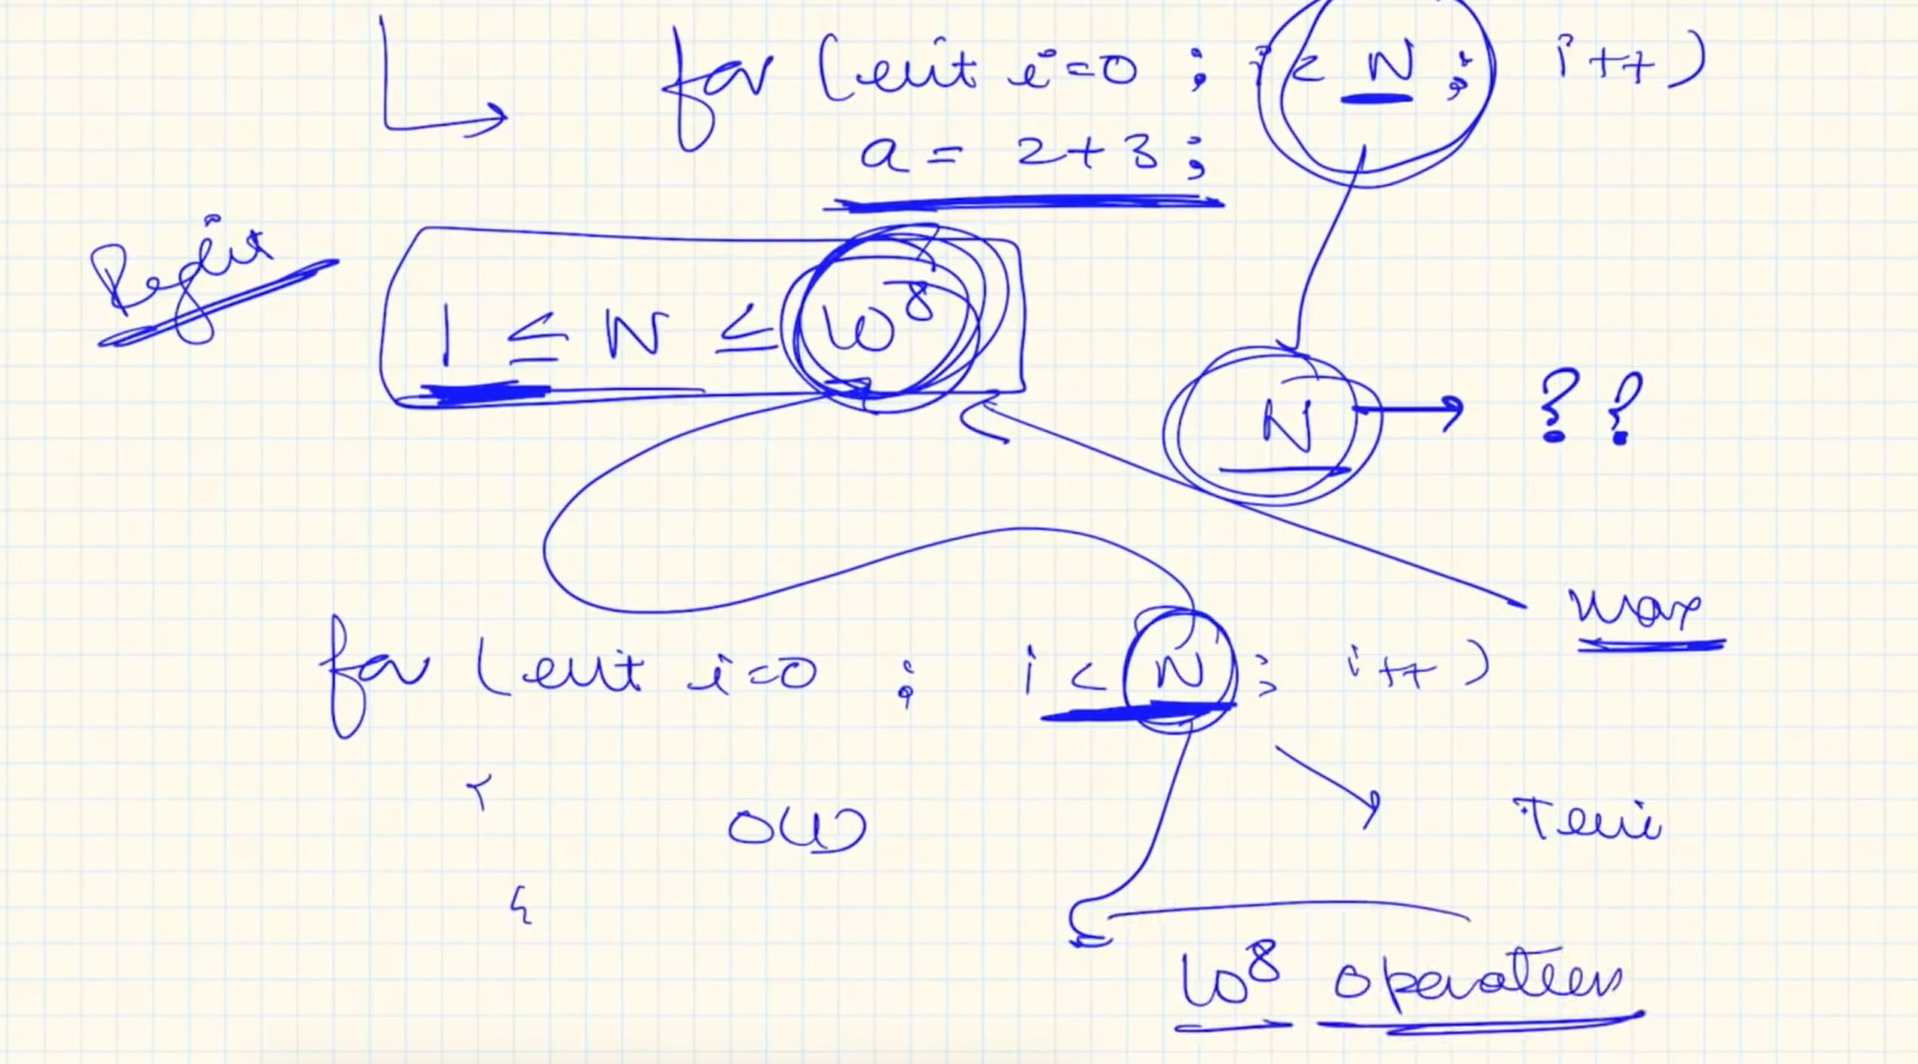 for (int i=0 ; i < N ; i++)
a = 2+3 ;
1 ≤ N ≤ 10^8
N → ??
max
for (int i=0 ; i < N ; i++)
{
O(1)
Time
}
10^8 operations